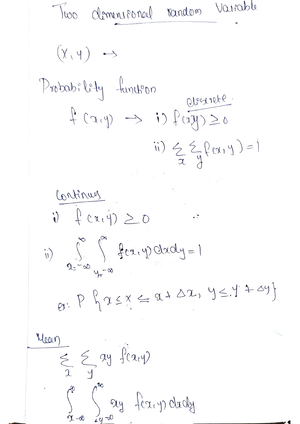 Two dimensional random Variable
(X, y) →
Probability function
discrete
f(x,y) → i) f(x,y) ≥ 0
ii) Σ Σ f(x,y) = 1
x y
Continues
i) f(x,y) ≥ 0
ii) ∫ ∫ f(x,y) dxdy = 1
x=-∞ y=-∞
P { x ≤ X ≤ x + Δx, y ≤ Y + Δy}
Mean
Σ Σ xy f(x,y)
x y
∫ ∫ xy f(x,y) dxdy
x=-∞ y=-∞